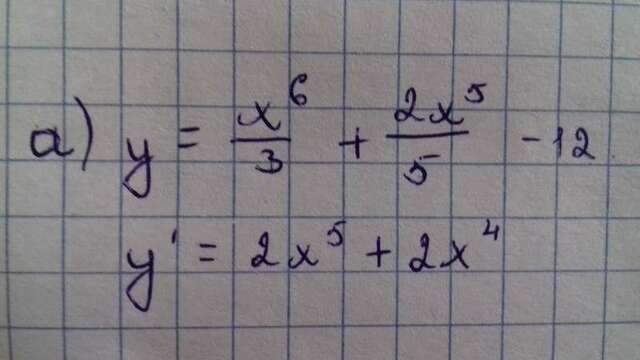 a)
y = x⁶/3 + 2x⁵/5 - 12
y' = 2x⁵ + 2x⁴